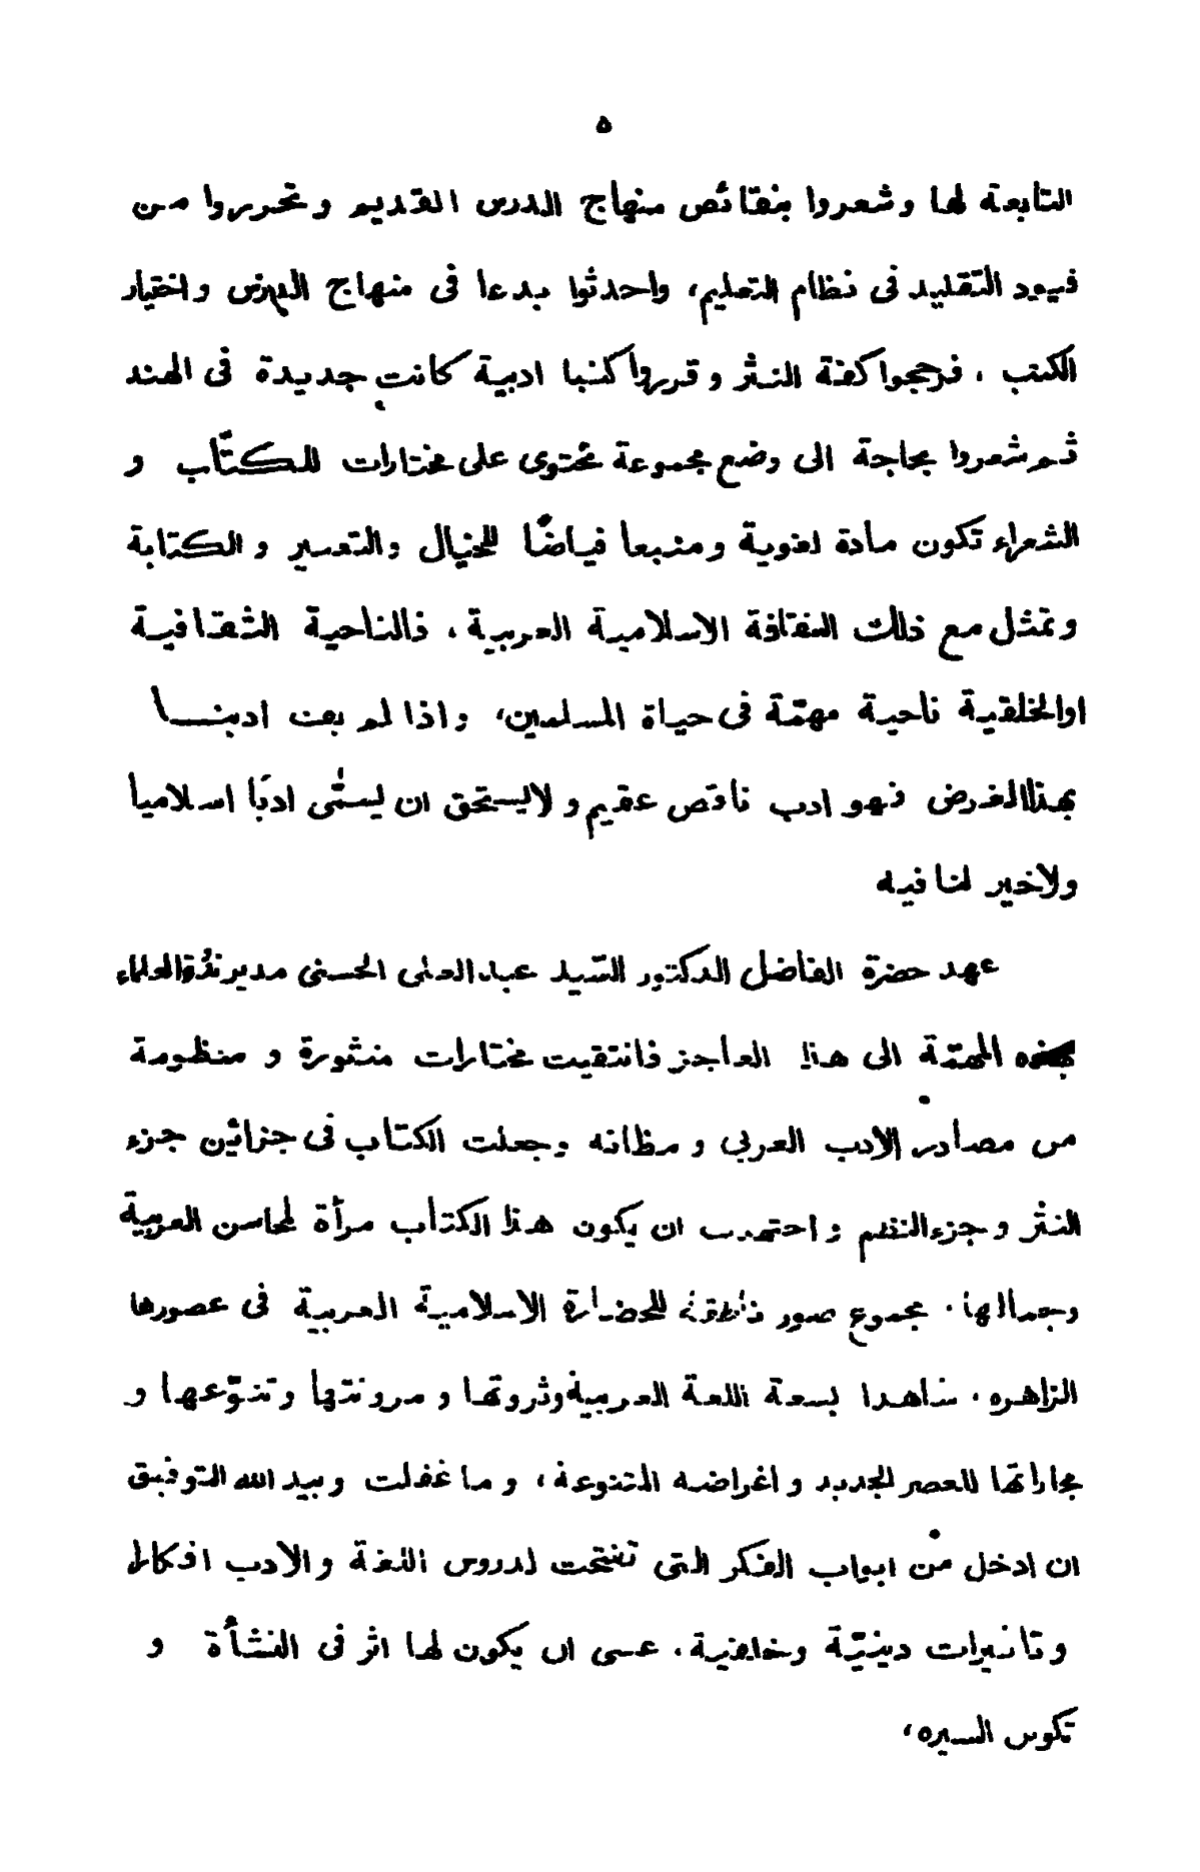 ٥
التابعة لها وشعروا بنقائص منهاج الدرس القديم وتحرروا من
قيود التقليد فى نظام التعليم، واحدثوا بدعا فى منهاج الدرس واختيار
الكتب ، فرجحوا كفة النثر وقرروا كتبا ادبية كانت جديدة فى الهند
ثم شعروا بحاجة الى وضع مجموعة تحتوى على مختارات للكتّاب و
الشعراء تكون مادة لغوية ومنبعا فياضًا للخيال والتعبير والكتابة
وتمثل مع ذلك الثقافة الاسلامية العربية ، فالناحية الثقافية
اوالخلقية ناحية مهمّة فى حياة المسلمين، واذا لم يعن ادبنـــا
بهذا الغرض فهو ادب ناقص عقيم ولايستحق ان يسمّٰى ادبًا اسلاميا
ولاخير لنا فيه
عهد حضرة الفاضل الدكتور السّيد عبدالعلى الحسنى مديرندوةالعلماء
بهذه المهمّة الى هذا العاجز فانتقيت مختارات منثورة و منظومة
من مصادر الأدب العربي و مظانه وجعلت الكتاب فى جزائين جزء
النثر وجزءالنظم واجتهدت ان يكون هذا الكتاب مرأة لمحاسن العربية
وجمالها ، مجموع صور ناطقة للحضارة الاسلامية العربية فى عصورها
الزاهره ، شاهدا بسعة اللغة العربية وثروتها و مرونتها وتنوّعها و
مجاراتها للعصر الجديد و اغراضه المتنوعة ، و ما غفلت وبيد الله التوفيق
ان ادخل من ابواب الفكر التى تفتحت لدروس اللغة والادب افكارا
وتاثيرات دينيّة وخلقية ، عسى ان يكون لها اثر فى النشأة و
تكوين السيره ،